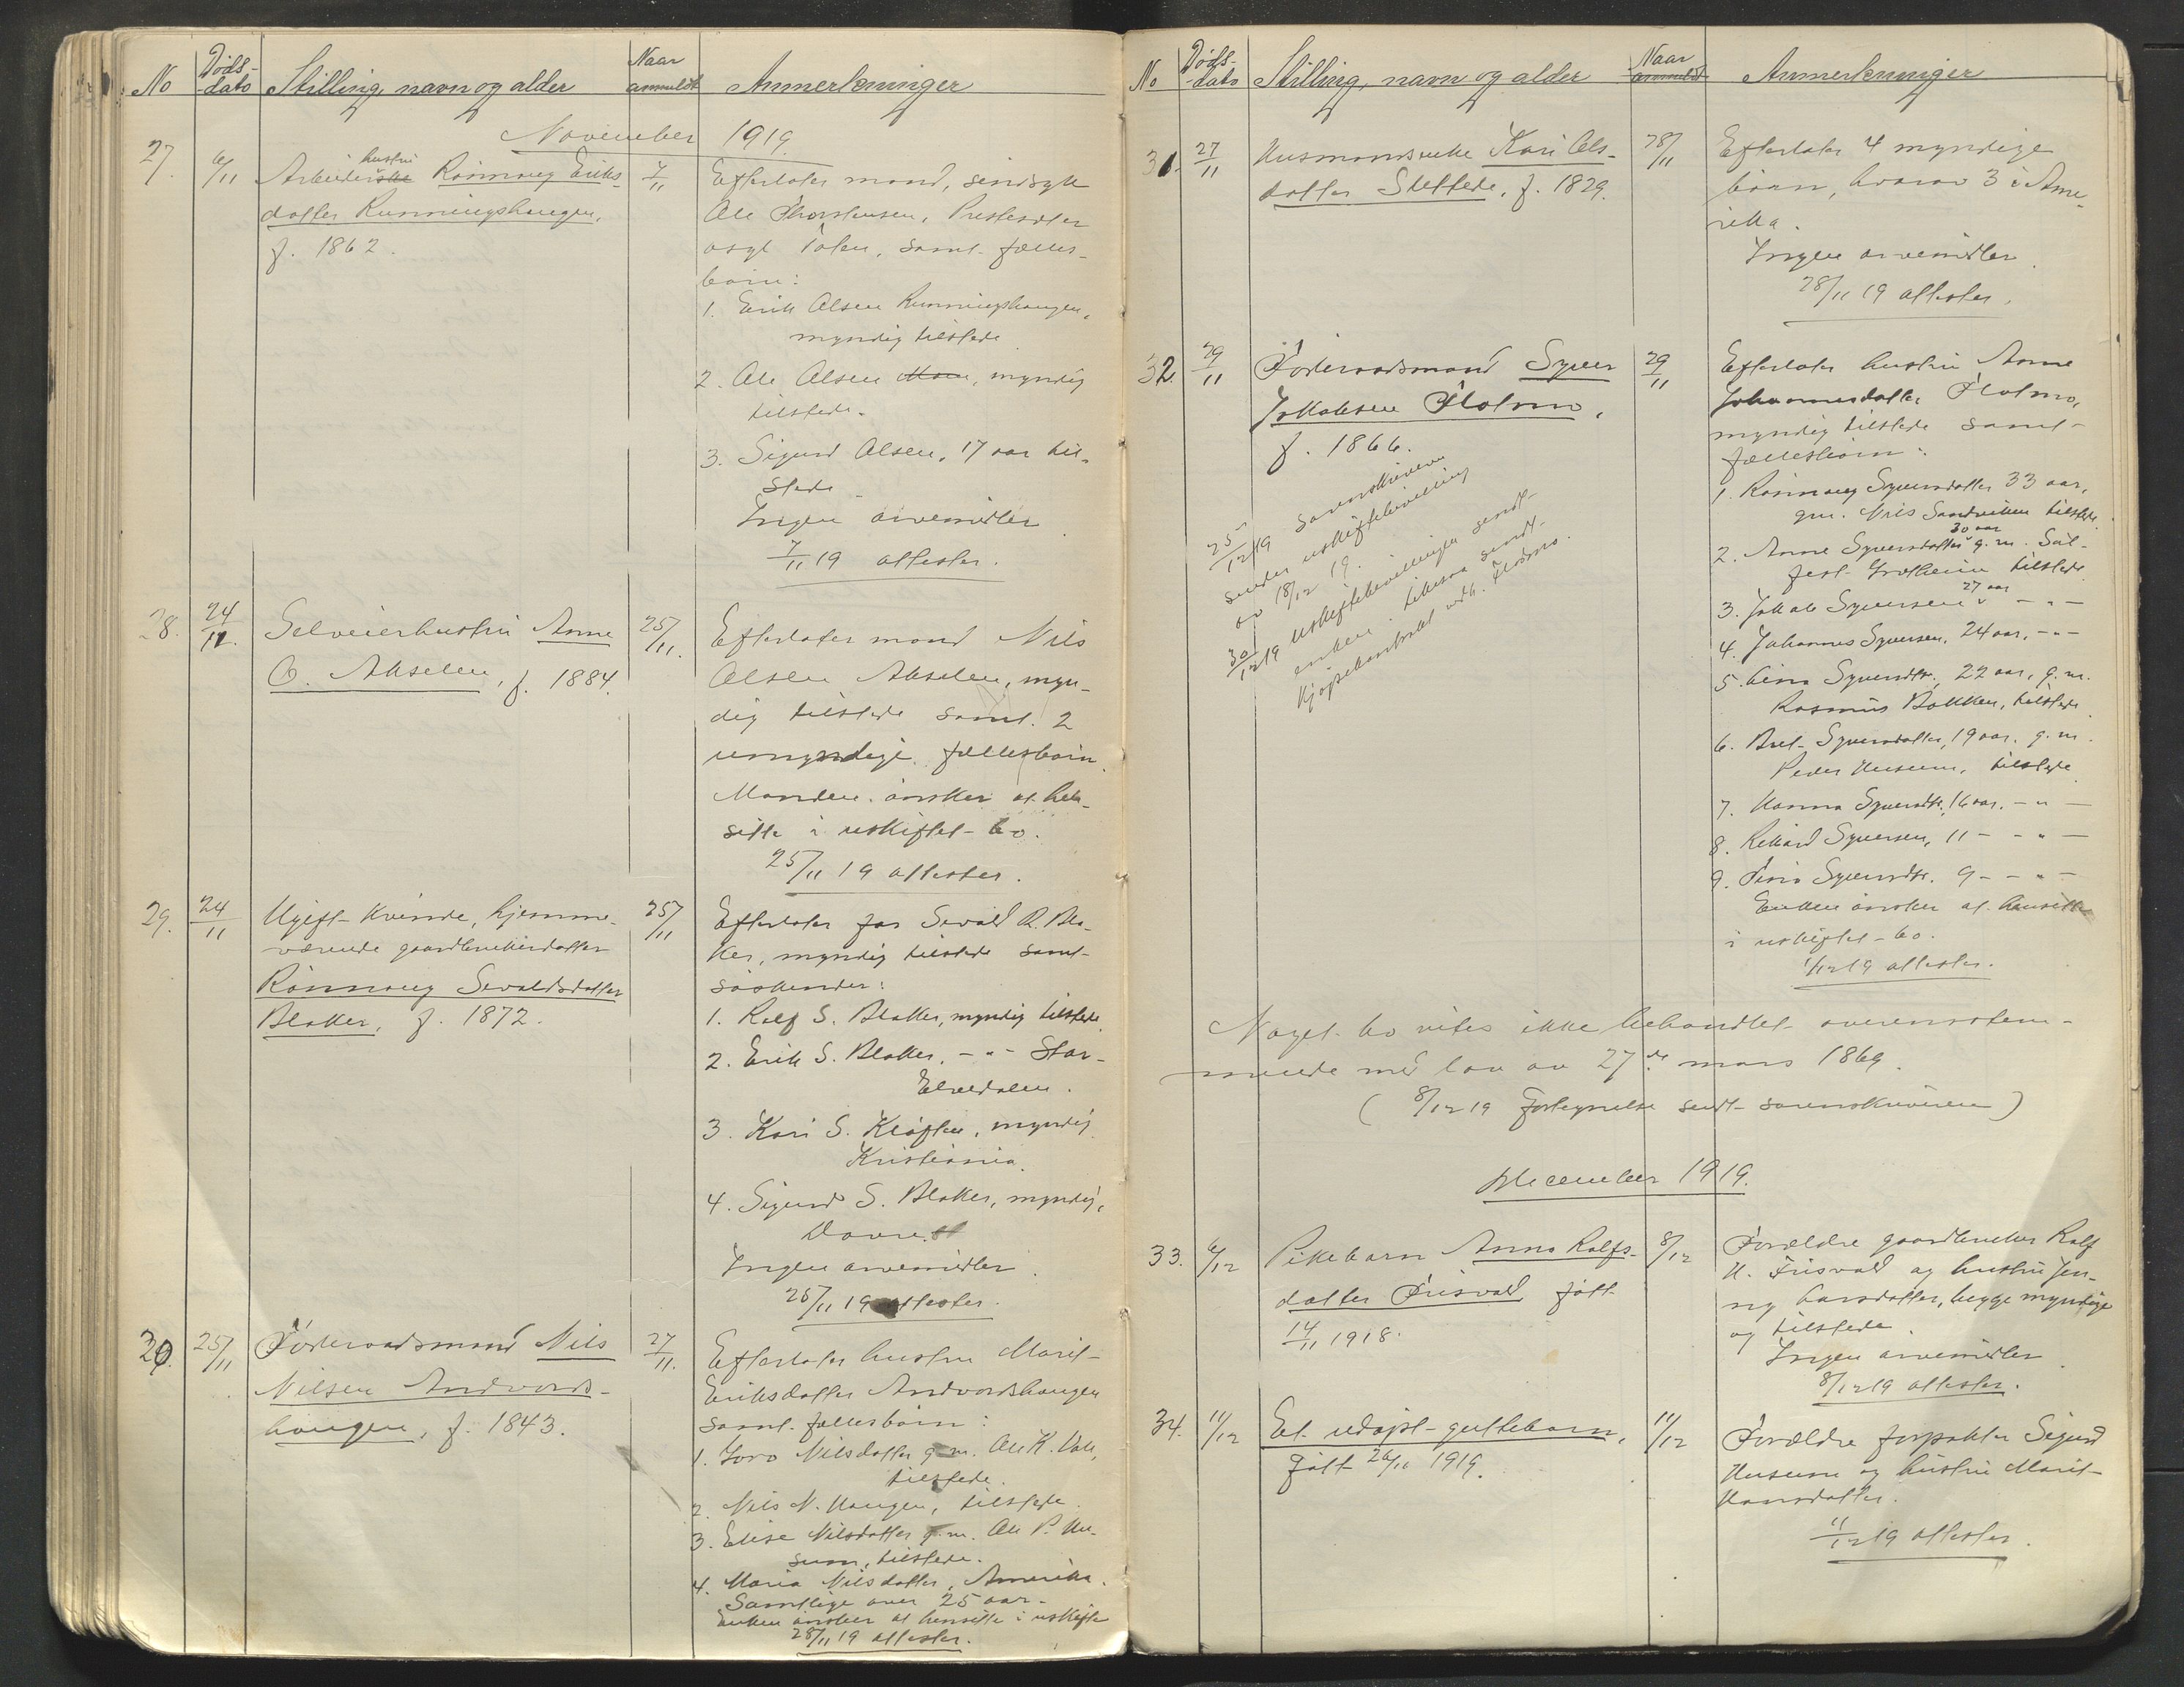 No Døds-dato Stilling, navn og alder Naar anmeldt Anmerkninger
November 1919.
27. 6/11 Arbeiderhustru Rønnaug Eriks-
datter Runningshaugen,
f. 1862.
7/11
Efterlater mand, sindsyk
Ole Thorstensen, Presteseter
asyl Toten, samt fælles-
børn:
1. Erik Olsen Runningshaugen,
myndig tilstede
2. Ole Olsen, myndig
tilstede.
3. Sigurd Olsen, 17 aar til-
stede
Ingen arvemidler
7/11 19 attester.
28. 24/11. Selveierhustru Anne
O. Akselen, f. 1884.
25/11.
Efterlater mand Nils
Olsen Akselen, myn-
dig tilstede samt 2
umyndige fællesbørn.
Manden ønsker at hen-
sitte i uskiftet bo.
25/11 19 attester.
29. 24/11 Ugift kvinde, hjemme-
værende gaardbrukerdatter
Rønnaug Sevaldsdatter
Blaker, f. 1872.
25/11
Efterlater far Sevald R. Bla-
ker, myndig tilstede samt
søskender:
1. Rolf S. Blaker, myndig tilstede
2. Erik S. Blaker, - " - Stor-
Elvedalen.
3. Kari S. Kløften, myndig
Kristiania.
4. Sigurd S. Blaker, myndig,
Dovre.
Ingen arvemidler.
25/11 19 attester.
30. 25/11 Føderaadsmand Nils
Nilsen Andvords-
haugen, f. 1843.
27/11.
Efterlater hustru Marit
Eriksdatter Andvordshaugen
samt fællesbørn:
1. Toro Nilsdatter g. m. Ole K. Vole,
tilstede.
2. Nils N. Haugen, tilstede.
3. Elise Nilsdatter g. m. Ole P. Hu-
sum, tilstede.
4. Maria Nilsdatter, Amerika.
Samtlige over 25 aar.
Enken ønsker at hensitte i uskifte
28/11 19 attester.
No Døds-dato Stilling, navn og alder Naar anmeldt Anmerkninger
31. 27/11 Husmandsenke Kari Ols-
datter Slettede, f. 1829.
28/11
Efterlater 4 myndige
børn, hvorav 3 i Ame-
rika.
Ingen arvemidler.
28/11 19 attester.
32. 29/11 Føderaadsmand Syver
Jakobsen Flatmo,
f. 1866.
25/12 19 sorenskriveren
sender uskiftebevilling
av 18/12 19.
30/12 19 uskiftebevillingen sendt
enken. Likesaa sendt
kjøpekontrakt vedk. Flatmo.
29/11
Efterlater hustru Anne
Johannesdatter Flatmo,
myndig tilstede samt
fællesbørn:
1. Rønnaug Syversdatter 33 aar,
gm. Nils Sandviken tilstede.
2. Anne Syversdatter 30 aar g. m. Sal-
fest Grotheim tilstede.
3. Jakob Syversen 27 aar - " -
4. Johannes Syversen, 24 aar, - " -
5. Lina Syversdtr., 22 aar, g. m.
Rasmus Bakken, tilstede.
6. Brit Syversdatter, 19 aar, g. m.
Peder Husum, tilstede
7. Hanna Syversdtr. 16 aar. - " -
8. Rikard Syversen, 11 - - " -
9. Syversdtr. 9 - - " -
Enken ønsker at hensitte
i uskiftet bo.
1/12 19 attester.
Noget bo vites ikke behandlet overensstem-
mende med lov av 27de mars 1869.
(8/12 19 fortegnelse sendt sorenskriveren)
December 1919.
33. 6/12 Pikebarn Anna Rolfs-
datter Frisvold født
14/11 1918.
8/12
Forældre gaardbruker Rolf
H. Frisvold og hustru Jen-
ny Larsdatter, begge myndige
og tilstede.
Ingen arvemidler.
8/12 19 attester.
34. 11/12 Et udøpt guttebarn,
født 26/11 1919.
11/12
Forældre forpakter Sigurd
Husum og hustru Marit
Hansdatter.
11/12 19 attester.